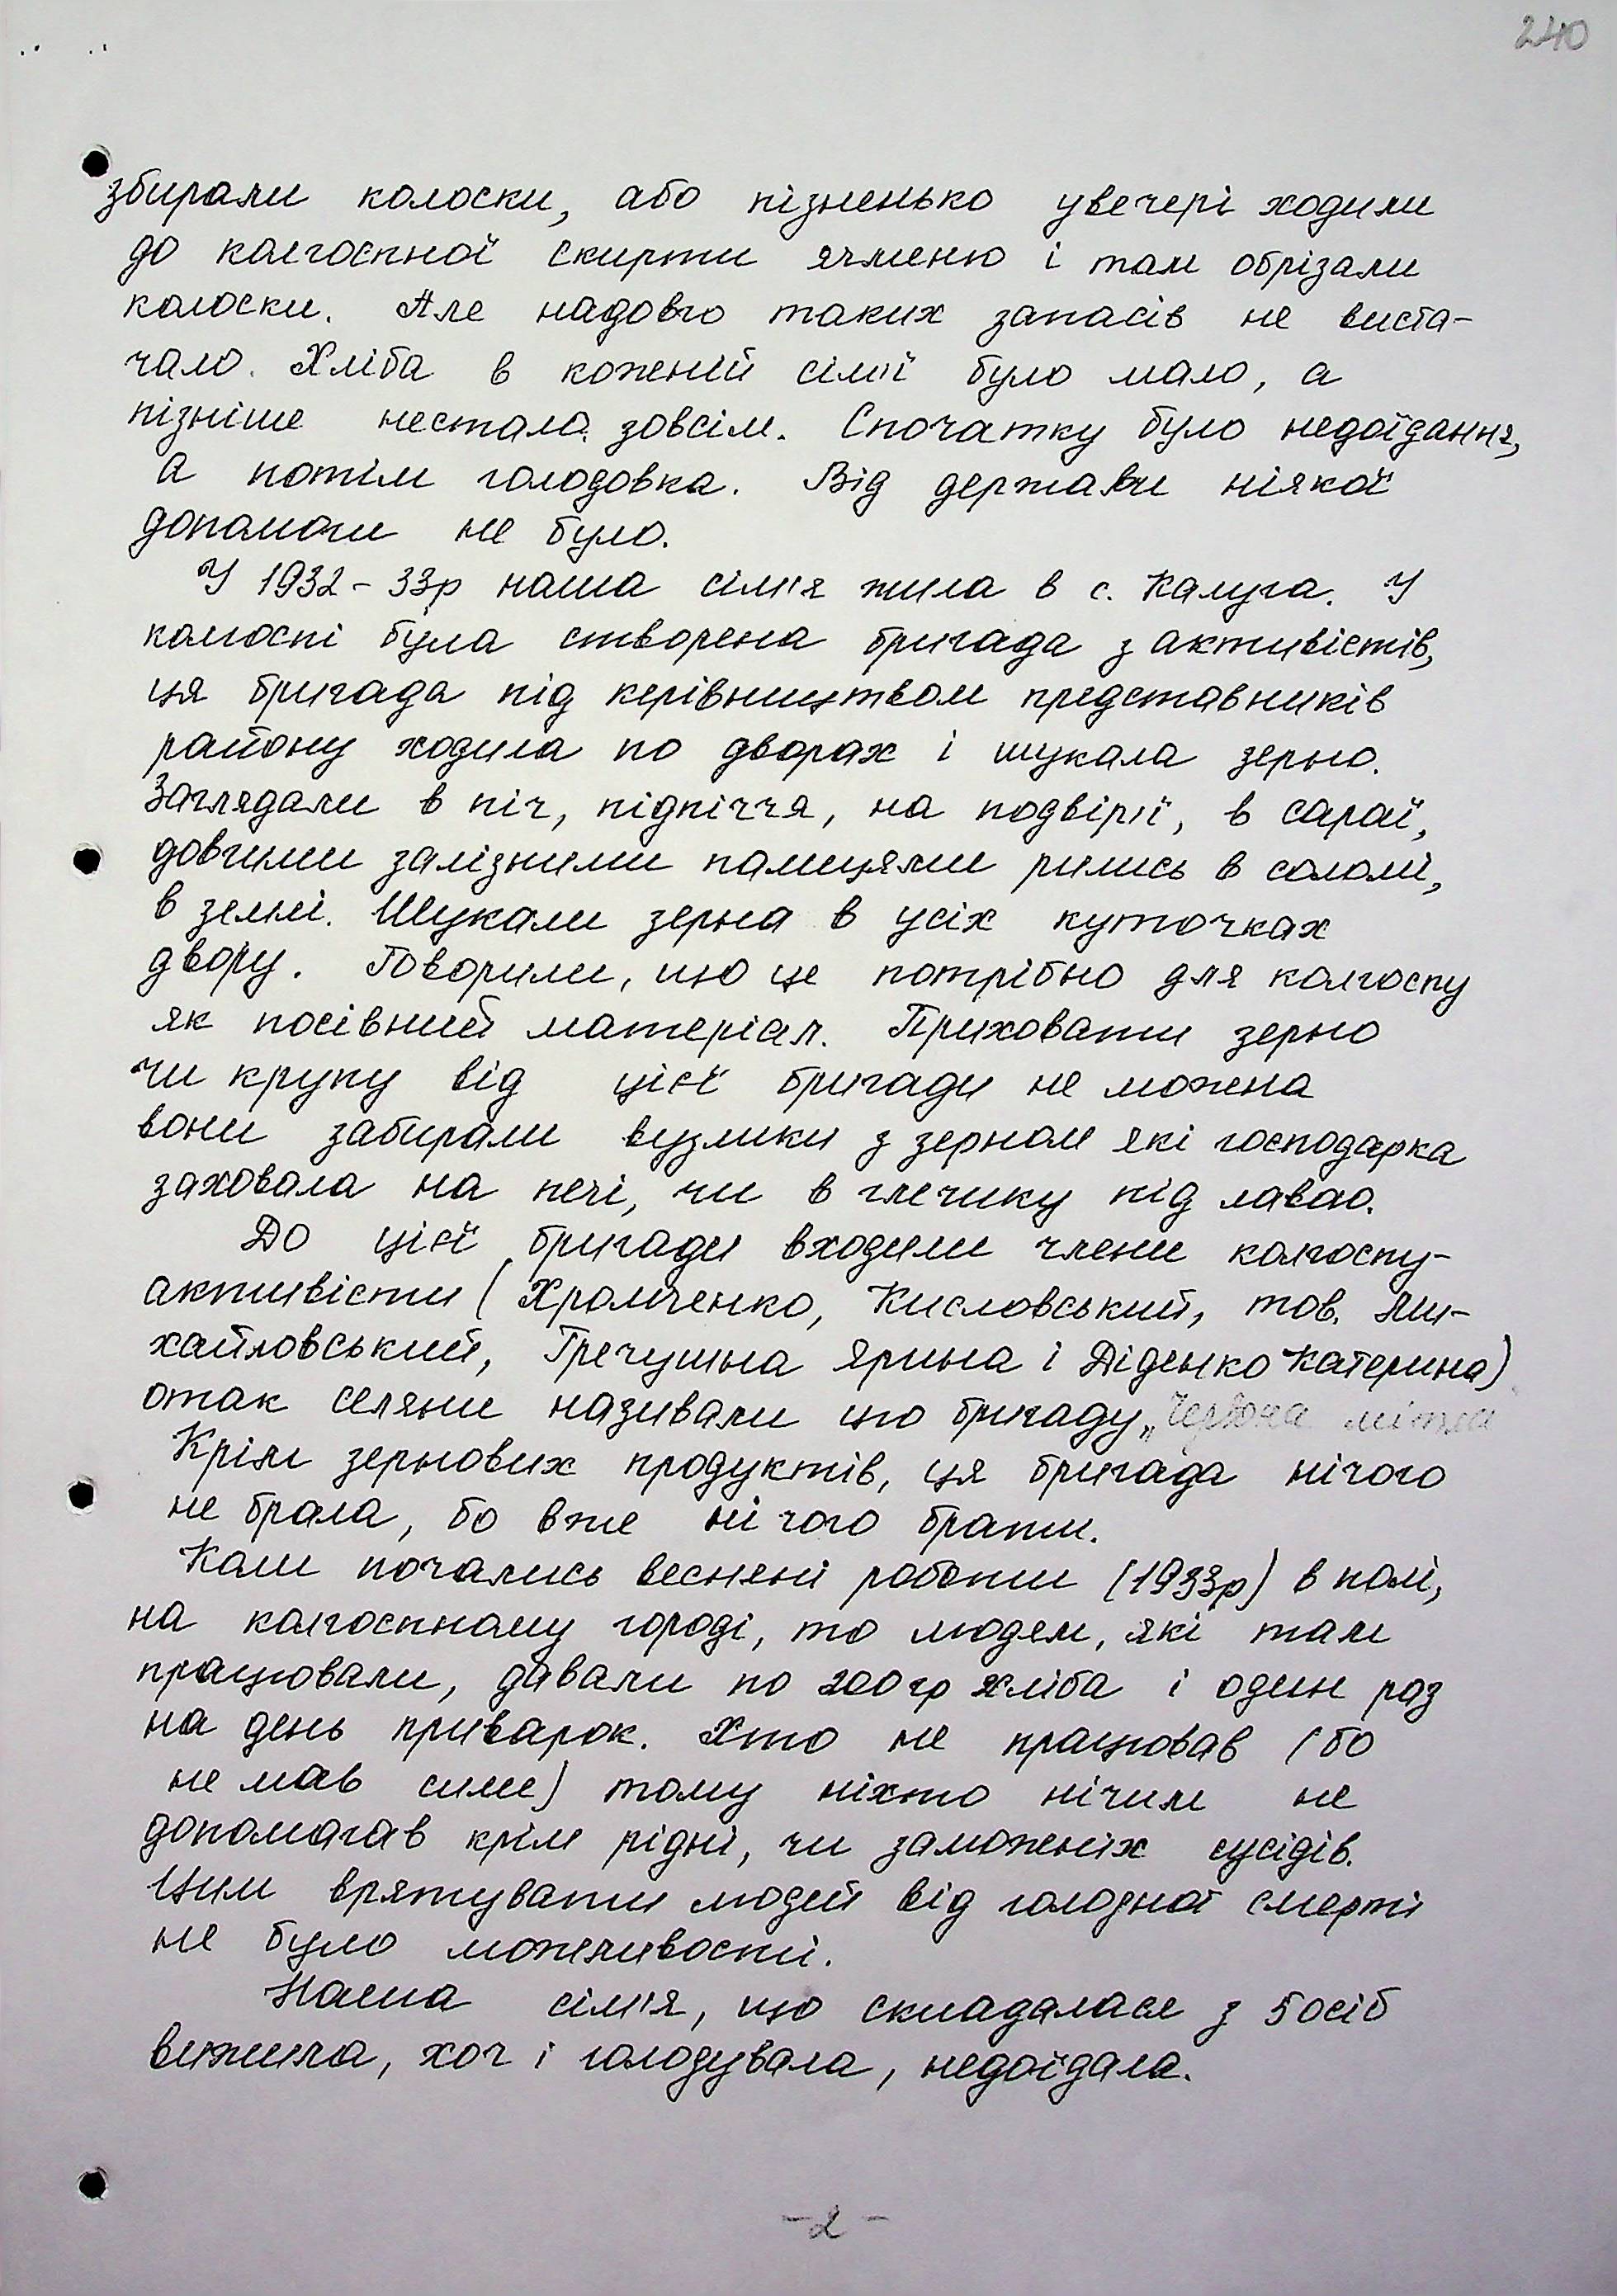 240
збирали колоски, або пізненько увечері ходили
до колгоспної скирти ячменю і там обрізали
колоски. Але надовго таких запасів не виста-
чало. Хліба в коженій сім'ї було мало, а
пізніше нестало зовсім. Спочатку було недоїдання,
а потім голодовка. Від держави ніякої
допомоги не було.
У 1932-33р наша сім'я жила в с. Калуга. У
колгоспі була створена бригада з активістів,
ця бригада під керівництвом представників
району ходила по дворах і шукала зерно.
Заглядали в піч, підпіччя, на подвір'ї, в сараї,
довгими залізними палицями рились в соломі,
в землі. Шукали зерна в усіх куточках
двору. Говорили, що це потрібно для колгоспу
як посівний матеріал. Приховати зерно
чи крупу від цієї бригади не можена
вони забирали вузлики з зерном які господарка
заховала на печі, чи в глечику під лавою.
До цієї бригади входили члени колгоспу-
активісти (Хромченко, Кисловський, тов. Ми-
хайловський, Гречушна Ярина і Діденко Катерина)
отак селяни називали цю бригаду „Червона мітла
Крім зернових продуктів, ця бригада нічого
не брала, бо вже нічого брати.
Коли почались весняні роботи (1933р) в полі,
на колгоспному городі, то людям, які там
працювали, давали по 200гр хліба і один раз
на день приварок. Хто не працював (бо
не мав сили) тому ніхто нічим не
допомагав крім рідні, чи заможеніх сусідів.
Цим врятувати людей від голодної смерті
не було можеливості.
Наша сім'я, що складалася з 5 осіб
вижила, хоч і голодувала, недоїдала.
-2-